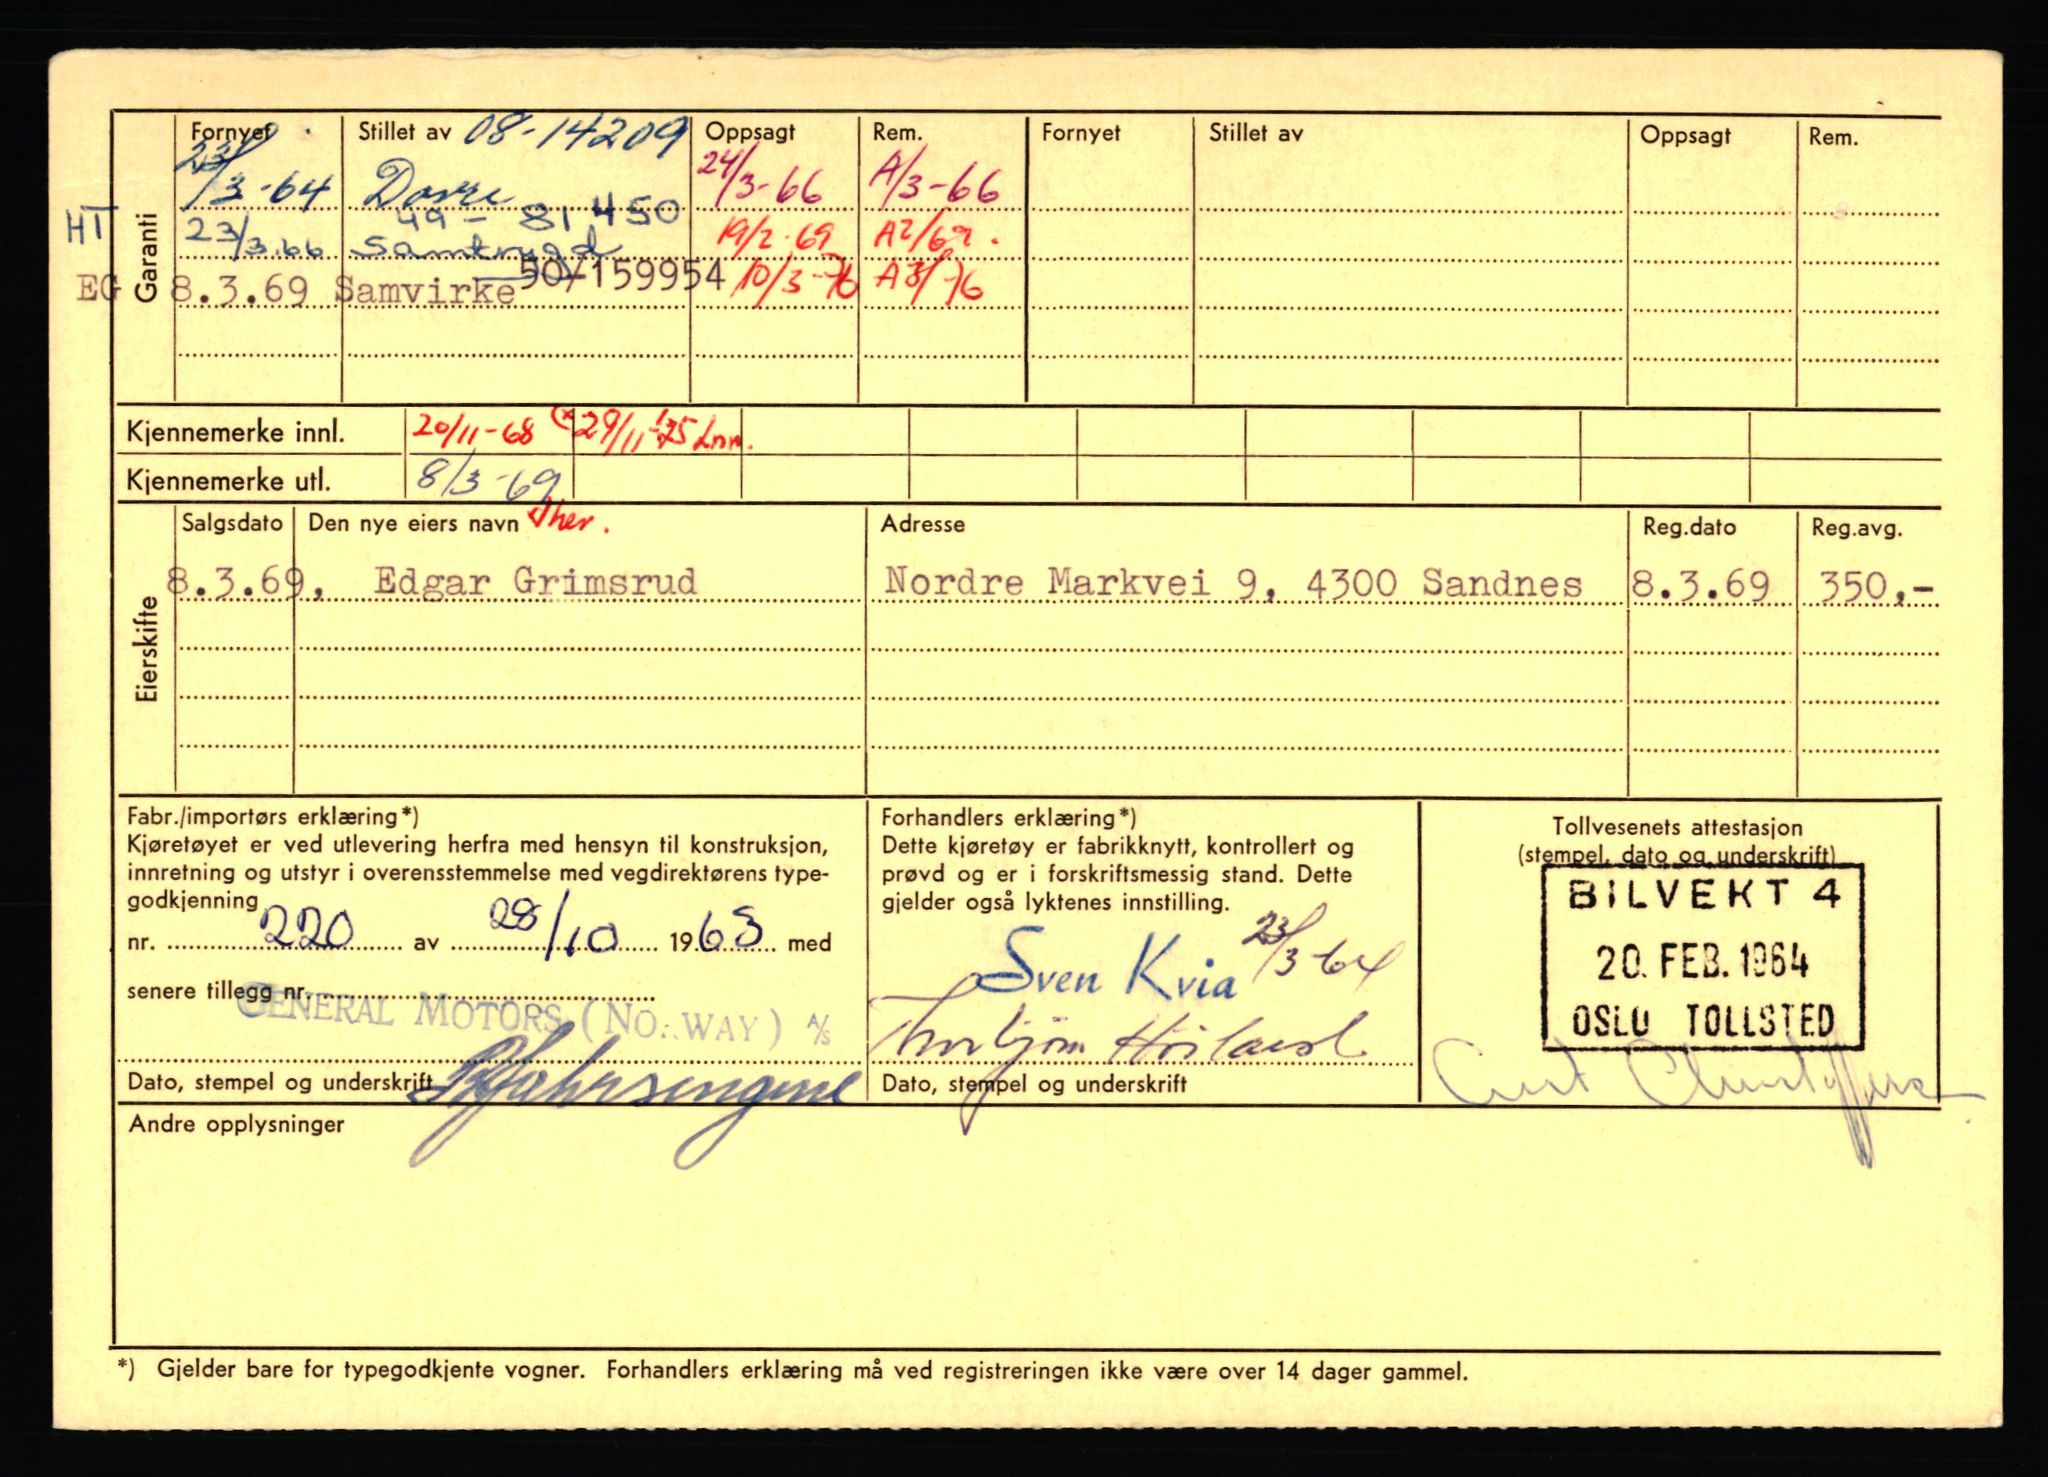 Garanti
Fornyet Stillet av 08-14209 Oppsagt Rem. Fornyet Stillet av Oppsagt Rem.
23/3-64 Dovre 24/3-66 A/3-66
HT 23/3.66 49-81450 Samtrygd 19/2-69 A2/69.
EG 8.3.69 Samvirke 50/159954 10/3-76 A3/-76
Kjennemerke innl. 20/11-68 (x 29/11-75
Kjennemerke utl. 8/3-69
Eierskifte
Salgsdato Den nye eiers navn Adresse Reg.dato Reg.avg.
8.3.69, Edgar Grimsrud Nordre Markvei 9, 4300 Sandnes 8.3.69 350,-
Fabr./importørs erklæring*)
Kjøretøyet er ved utlevering herfra med hensyn til konstruksjon,
innretning og utstyr i overensstemmelse med vegdirektørens type-
godkjenning
nr. 220 av 28/10 1963 med
senere tillegg nr.
GENERAL MOTORS (NORWAY) A/S
Dato, stempel og underskrift
Forhandlers erklæring*)
Dette kjøretøy er fabrikknytt, kontrollert og
prøvd og er i forskriftsmessig stand. Dette
gjelder også lyktenes innstilling.
Sven Kvia 23/3-64
Torbjørn Høiland
Dato, stempel og underskrift
Tollvesenets attestasjon
(stempel, dato og underskrift)
BILVEKT 4
20. FEB. 1964
OSLO TOLLSTED
Andre opplysninger
*) Gjelder bare for typegodkjente vogner. Forhandlers erklæring må ved registreringen ikke være over 14 dager gammel.